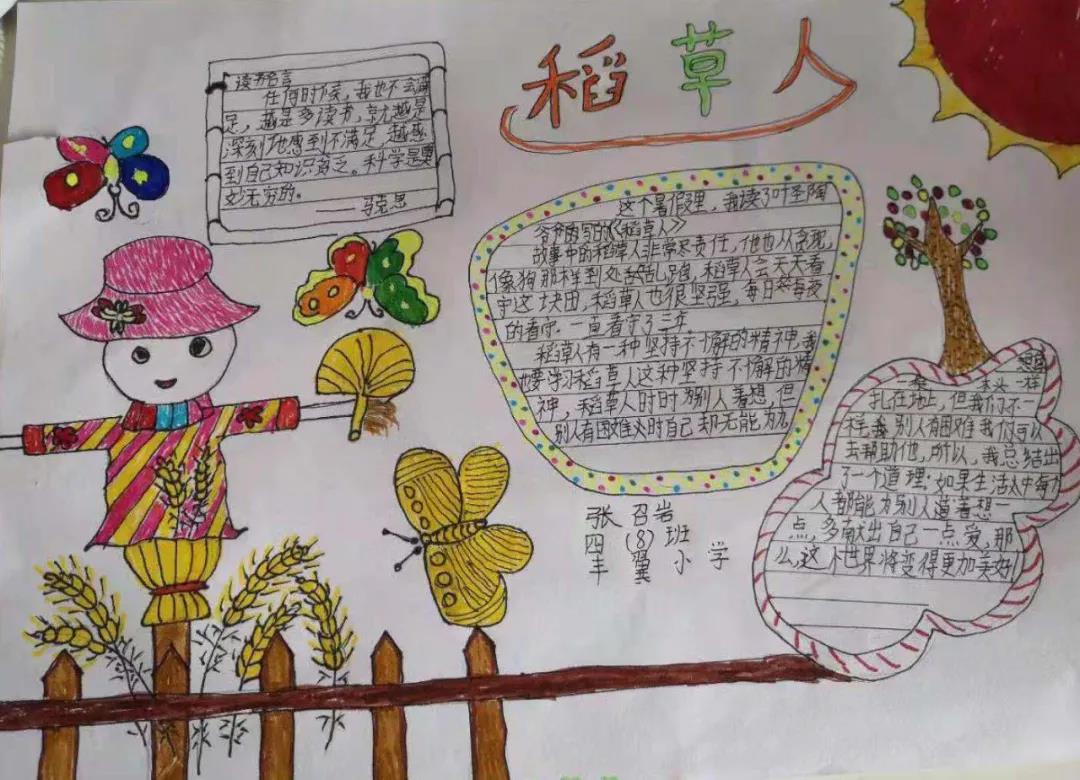 稻草人
读书名言
任何时候，我也不会满
足，越是多读书，就越是
深刻地感到不满足，越感
到自己知识贫乏。科学是奥
妙无穷的。
——马克思
这个暑假里，我读了叶圣陶
爷爷写的《稻草人》
故事中的稻草人非常尽责任，他也从
像狗那样到处乱跑，稻草人会天天看
守这块田，稻草人也很坚强，每日每夜
的看守，一直看守了三年。
稻草人有一种坚持不懈的精神，我
也要学习稻草人这种坚持不懈的精
神，稻草人时时为别人着想，但
别人有困难时自己却无能为力
一样
扎在地上，但我们不一
样，我别人有困难我们可以
去帮助他，所以，我总结出
了一个道理：如果生活中每个
人都能为别人道着想一
点，多献出自己一点爱，那
么，这个世界将变得更加美好
张召岩
四（8）班
丰翼小学